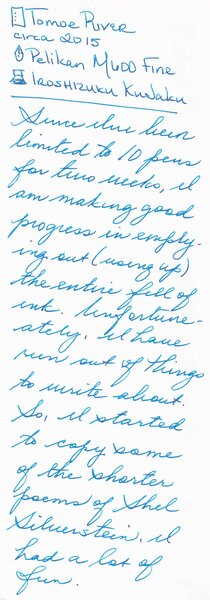 Tomoe River
circa 2015
Pelikan M400 Fine
Iroshizuku Kujaku
Since I've been
limited to 10 pens
for two weeks, I
am making good
progress in empty-
ing out (using up)
the entire fill of
ink. Unfortun-
ately, I have
run out of things
to write about.
So, I started
to copy some
of the shorter
poems of Shel
Silverstein. I
had a lot of
fun.